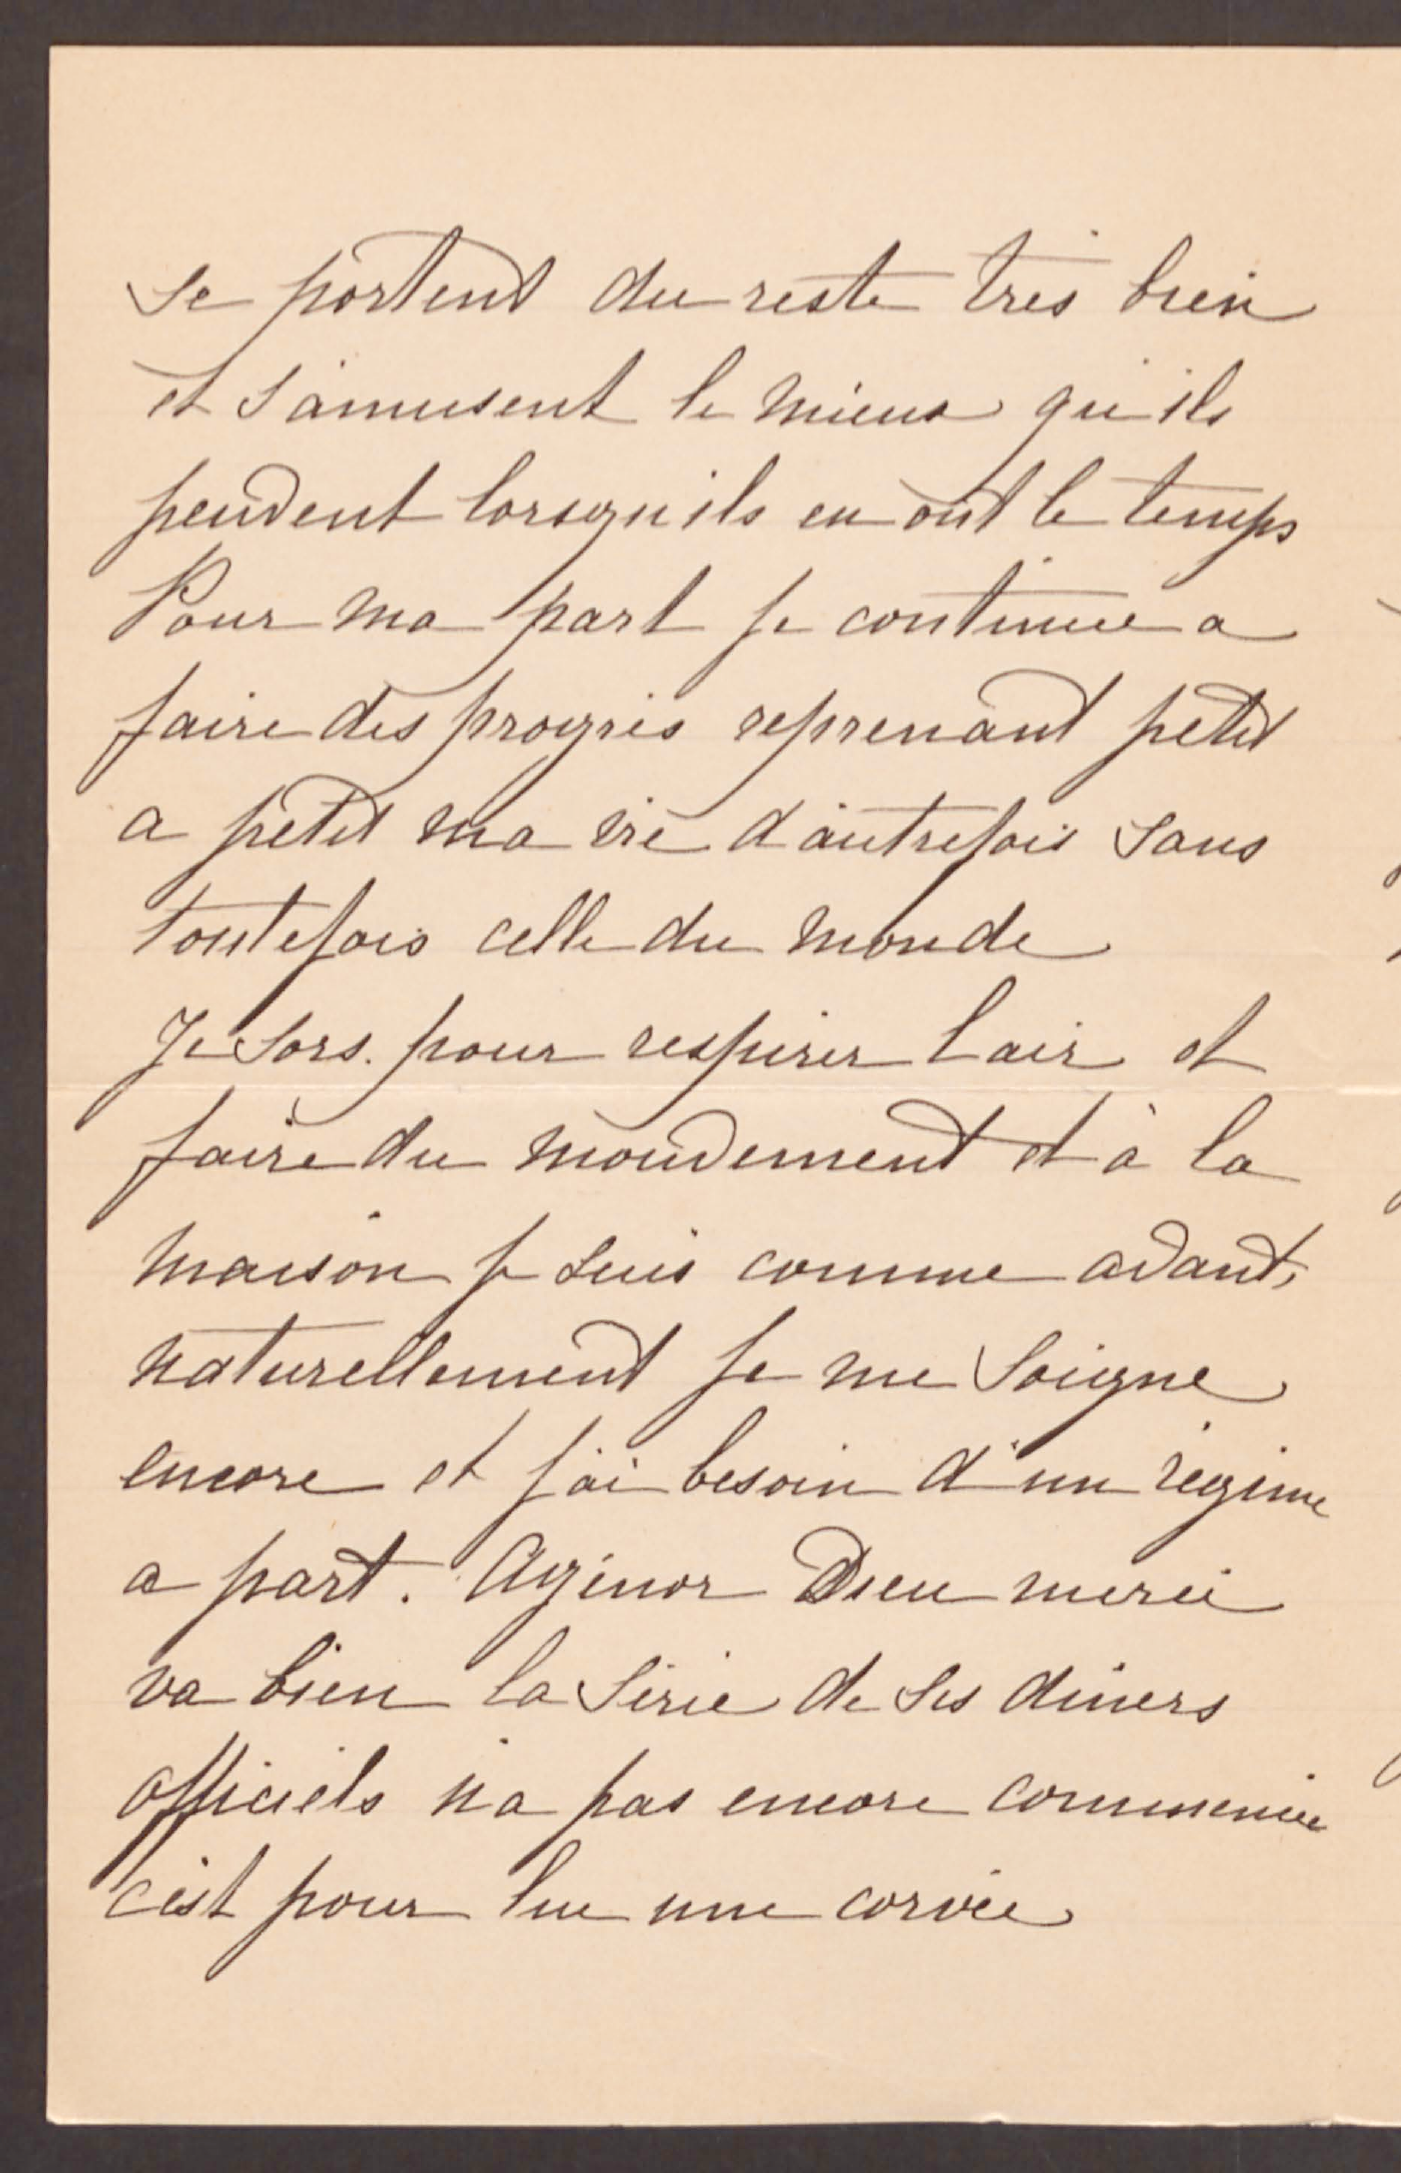 se portent du reste très bien
et s'amusent le mieux qu'ils
peuvent lorsqu'ils en ont le temps
Pour ma part je continue a
faire des progrès reprenant petit
a petit ma vie d'autrefois sans
toutefois celle du monde
Je sors. pour respirer l'air et
faire du mouvement et à la
maison je suis comme avant,
naturellement je me soigne
encore et j'ai besoin d'un régime
a part. Agénor Dieu merci
va bien la série de ses diners
officiels n'a pas encore commencée
c'est pour lui une corvée